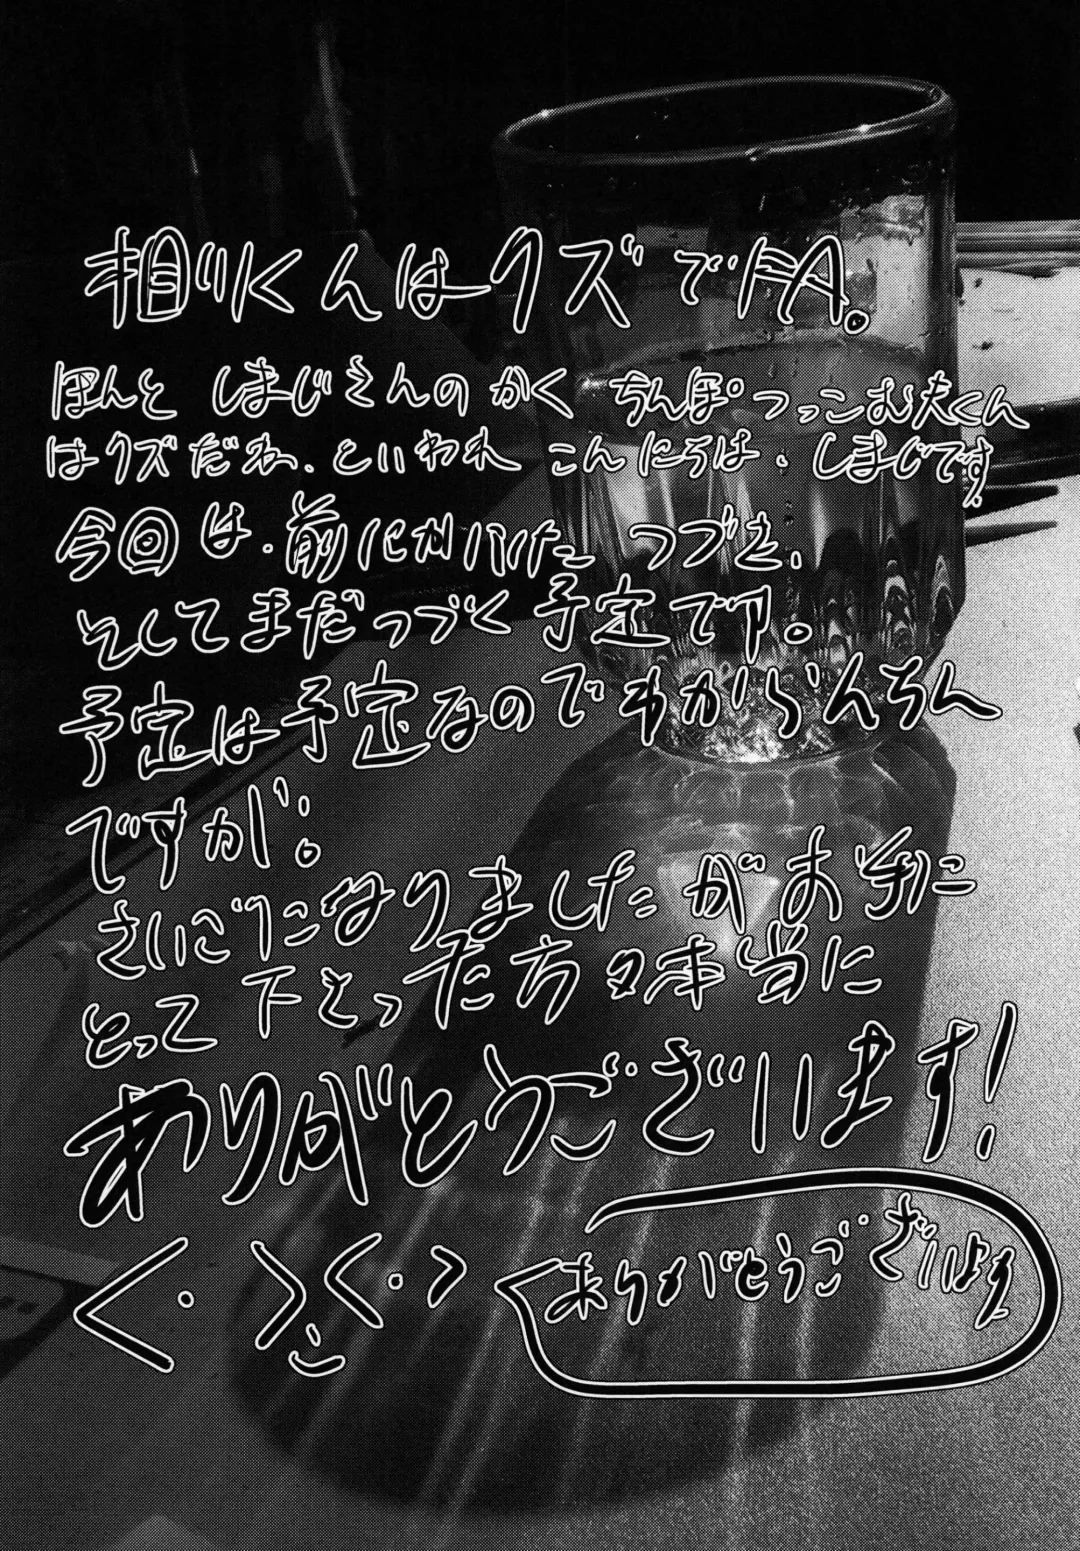 相川くんはクズでFA。
ほんと しまじさんのかく ちんぽつっこむ夫くん
はクズだね、といわれ こんにちは、しまじです。
今回は、前にかいたつづき、
そしてまだつづく予定です。
予定は予定なのでわからんちん
ですが!
さいごになりましたがお手に
とって下さった方々本当に
ありがとうございます!
ありがとうございます